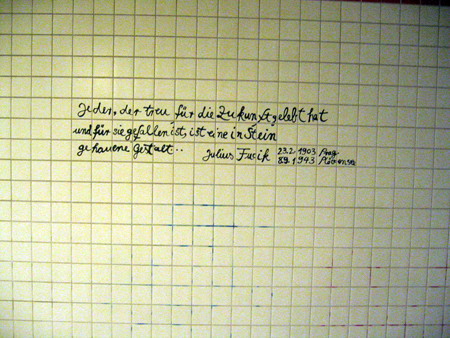 Jeder, der treu für die Zukunft gelebt hat
und für sie gefallen ist, ist eine in Stein
gehauene Gestalt..
Julius Fucik 23.2.1903 Prag
8.9.1943 Plötzensee